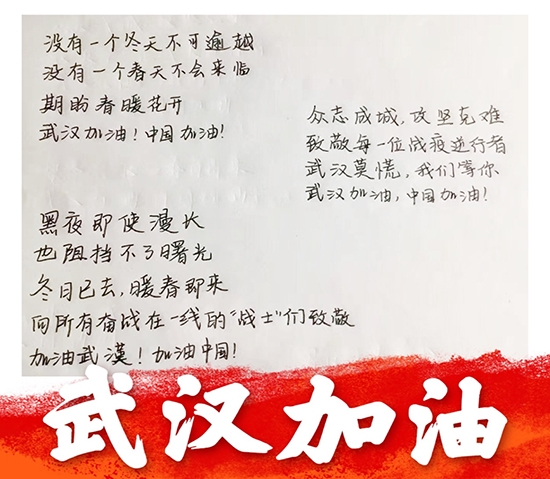 没有一个冬天不可逾越
没有一个春天不会来临
期盼春暖花开
武汉加油！中国加油！
众志成城，攻坚克难
致敬每一位战疫逆行者
武汉莫慌，我们等你
武汉加油，中国加油！
黑夜即使漫长
也阻挡不了曙光
冬日已去，暖春即来
向所有奋战在一线的“战士”们致敬
加油武漢！加油中国！
武汉加油